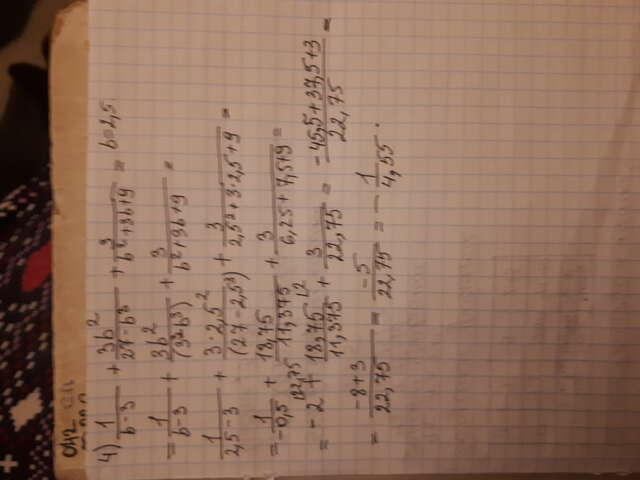 4) 1/(b-3) + 3b²/(27-b³) + 3/(b²+3b+9) = b=2,5
= 1/(b-3) + 3b²/(3³-b³) + 3/(b²+3b+9) =
1/(2,5-3) + 3·2,5²/(27-2,5³) + 3/(2,5²+3·2,5+9) =
= 1/-0,5 + 18,75/11,375 + 3/(6,25+7,5+9) =
= -2 + 18,75/11,375 + 3/22,75 = (-45,5+37,5+3)/22,75 =
= (-8+3)/22,75 = -5/22,75 = - 1/4,55.